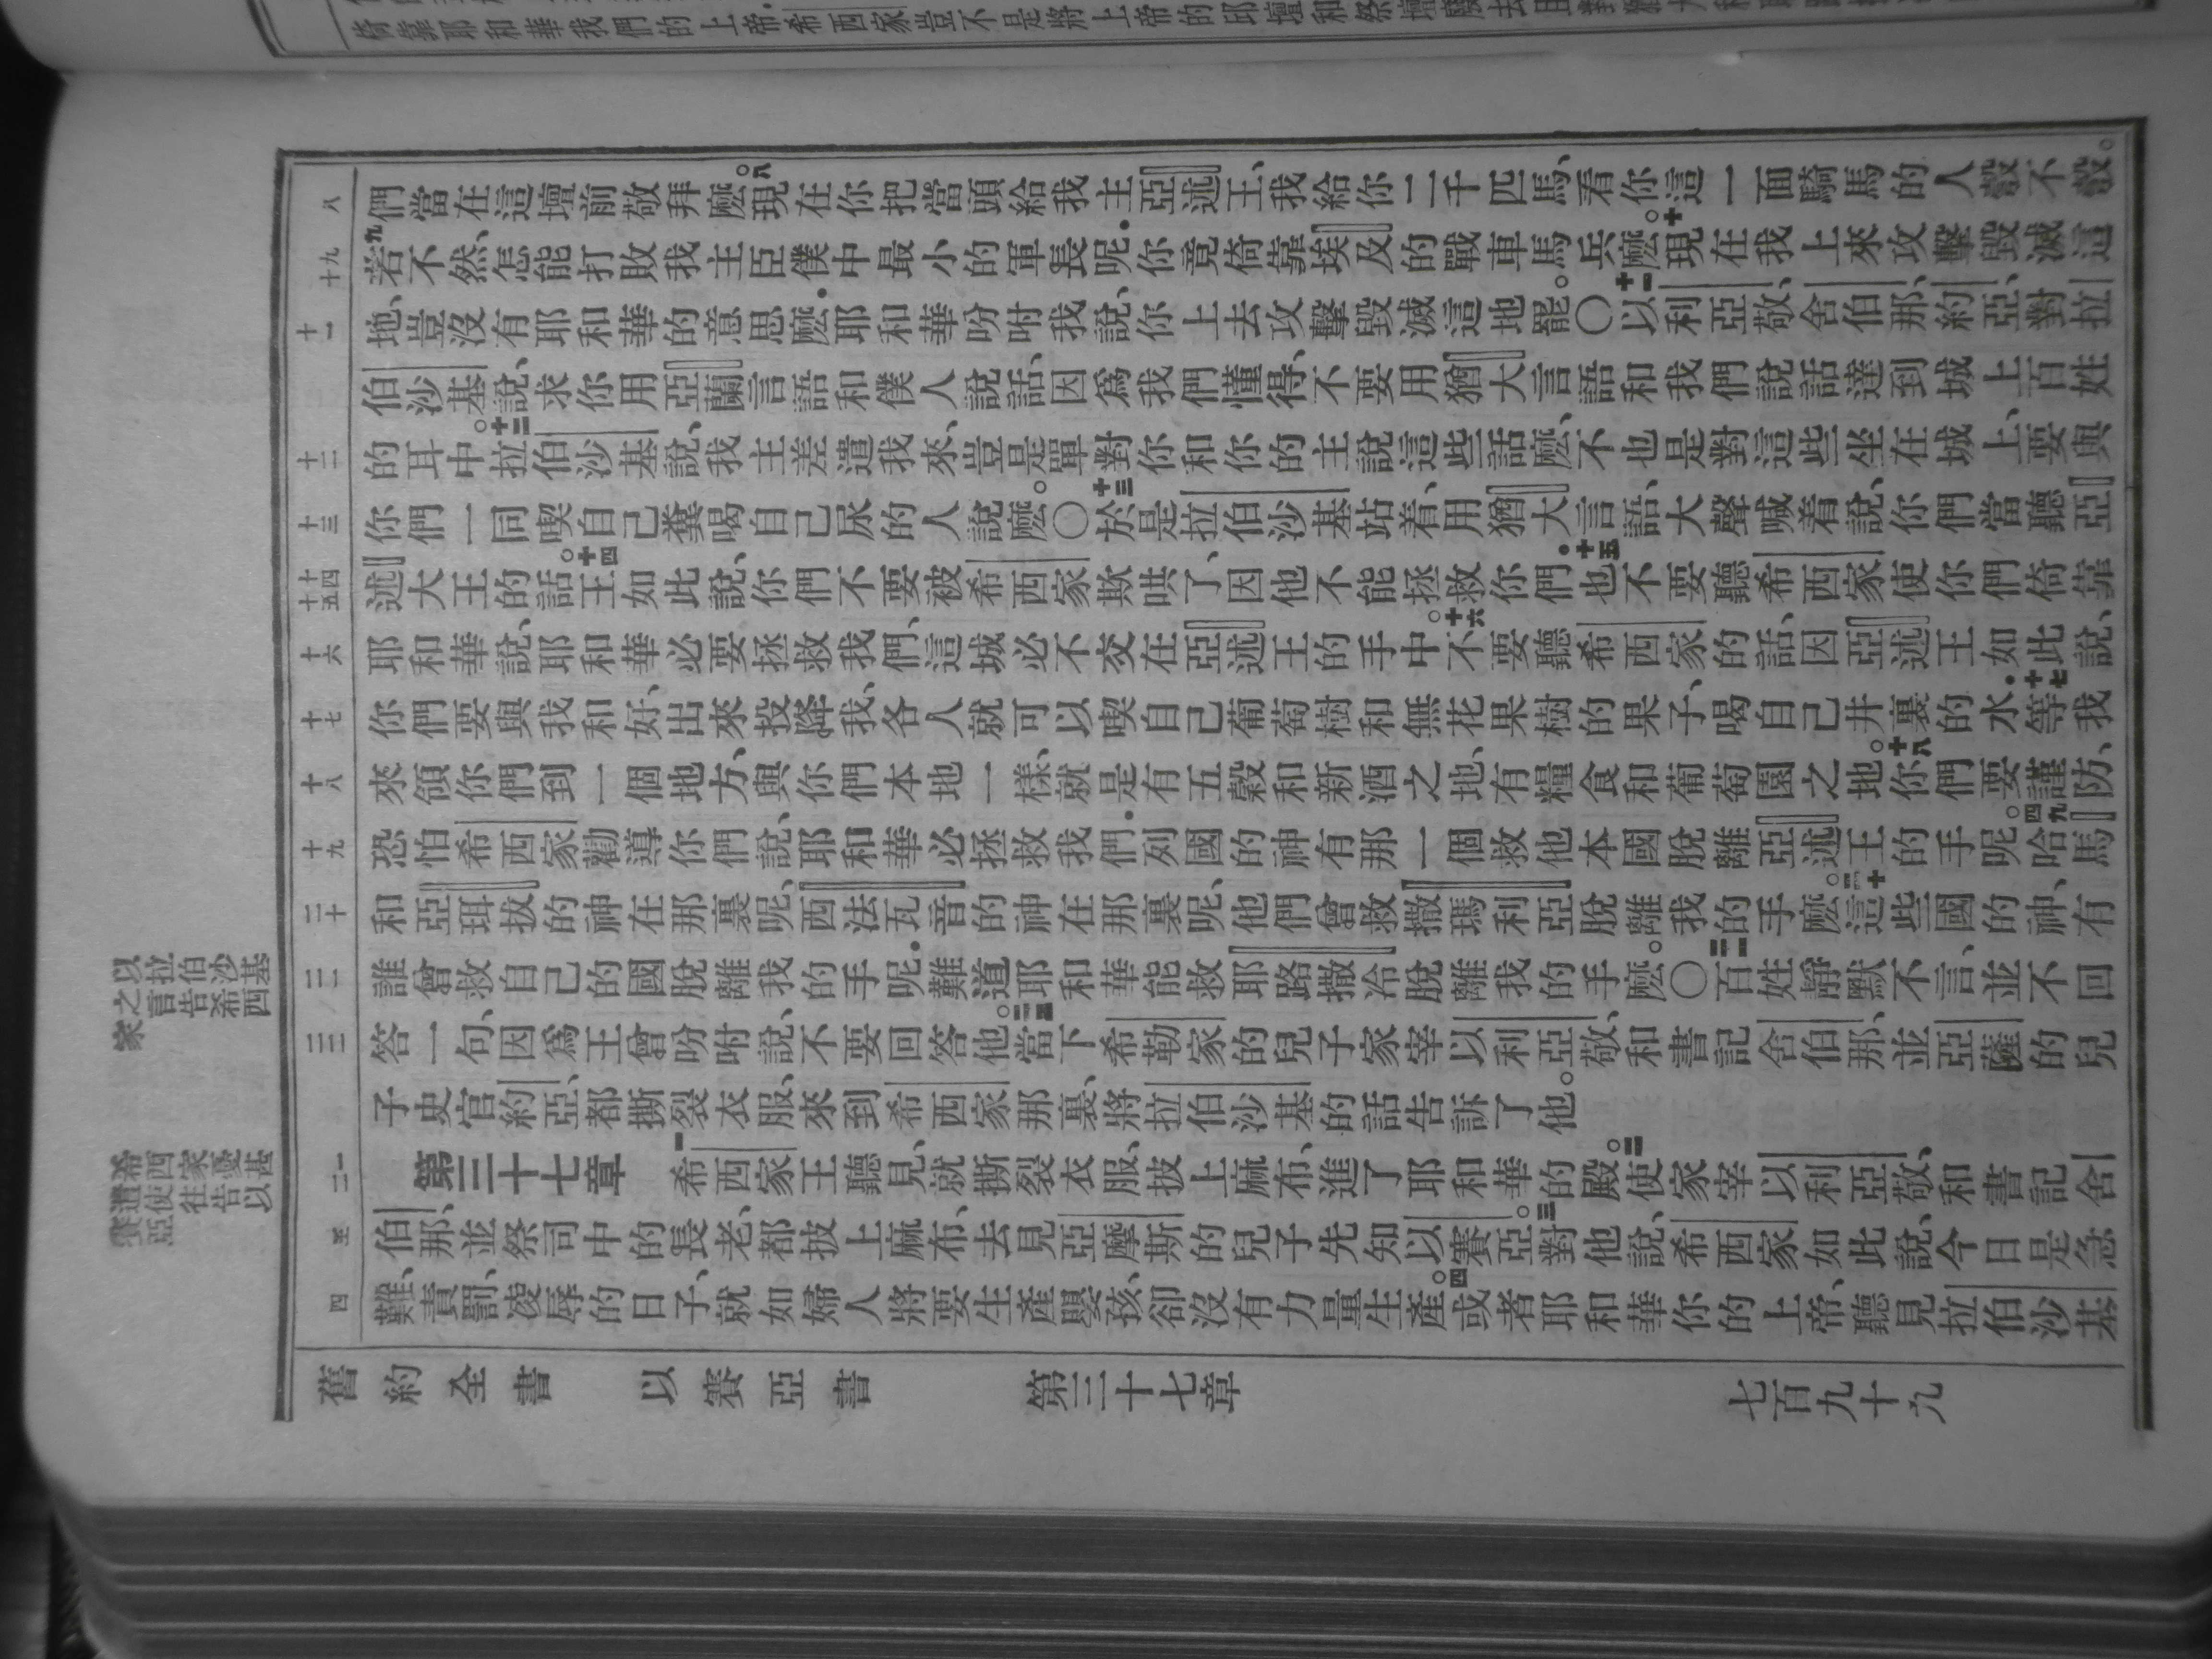 們當在這壇前敬拜麽。現在你把當頭給我主亞述王、我給你二千匹馬、看你這一面騎馬的人彀不彀。
若不然、怎能打敗我主臣僕中最小的軍長呢．你竟倚靠埃及的戰車馬兵麽。現在我上來攻擊毀滅這
地、豈沒有耶和華的意思麽．耶和華吩咐我說、你上去攻擊毀滅這地罷。〇以利亞敬、舍伯那、約亞、對拉
伯沙基說、求你用亞蘭言語和僕人說話、因爲我們懂得、不要用猶大言語和我們說話、達到城上百姓
的耳中。拉伯沙基說、我主差遣我來、豈是單對你和你的主說這些話麽、不也是對這些坐在城上、要與
你們一同喫自己糞喝自己尿的人說麽。〇於是拉伯沙基站着、用猶大言語、大聲喊着說、你們當聽亞
述大王的話。王如此說、你們不要被希西家欺哄了、因他不能拯救你們．也不要聽希西家使你們倚靠
耶和華說、耶和華必要拯救我們、這城必不交在亞述王的手中。不要聽希西家的話、因亞述王如此說、
你們要與我和好、出來投降我、各人就可以喫自己葡萄樹和無花果樹的果子、喝自己井裏的水．等我
來領你們到一個地方、與你們本地一樣、就是有五穀和新酒之地、有糧食和葡萄園之地。你們要謹防、
恐怕希西家勸導你們說、耶和華必拯救我們．列國的神有那一個救他本國脫離亞述王的手呢。哈馬
和亞珥拔的神在那裏呢、西法瓦音的神在那裏呢、他們曾救撒瑪利亞脫離我的手麽。這些國的神、有
誰曾救自己的國脫離我的手呢．難道耶和華能救耶路撒冷脫離我的手麽。〇百姓靜默不言、並不回
答一句、因爲王曾吩咐說、不要回答他。當下希勒家的兒子家宰以利亞敬、和書記舍伯那、並亞薩的兒
子史官約亞、都撕裂衣服、來到希西家那裏、將拉伯沙基的話告訴了他。
以拉伯沙基
之言告希西
家
第三十七章 一希西家王聽見、就撕裂衣服、披上麻布、進了耶和華的殿。使家宰以利亞敬、和書記舍
伯那、並祭司中的長老、都披上麻布、去見亞摩斯的兒子先知以賽亞。對他說、希西家如此說、今日是急
難、責罰、凌辱的日子、就如婦人將要生產嬰孩、卻沒有力量生產。或者耶和華你的上帝、聽見拉伯沙基
希西家憂甚
遣使往告以
賽亞
舊約全書 以賽亞書 第三十七章 七百九十九